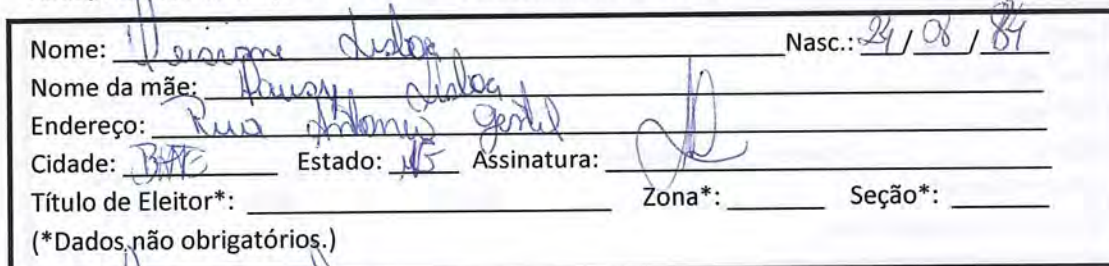 Nome: Lisboa Nasc.: 24 / 06 / 84
Nome da mãe: Lisboa
Endereço: Rua Antonio Gentil
Cidade: Estado: Assinatura:
Título de Eleitor*: Zona*: Seção*:
(*Dados não obrigatórios.)